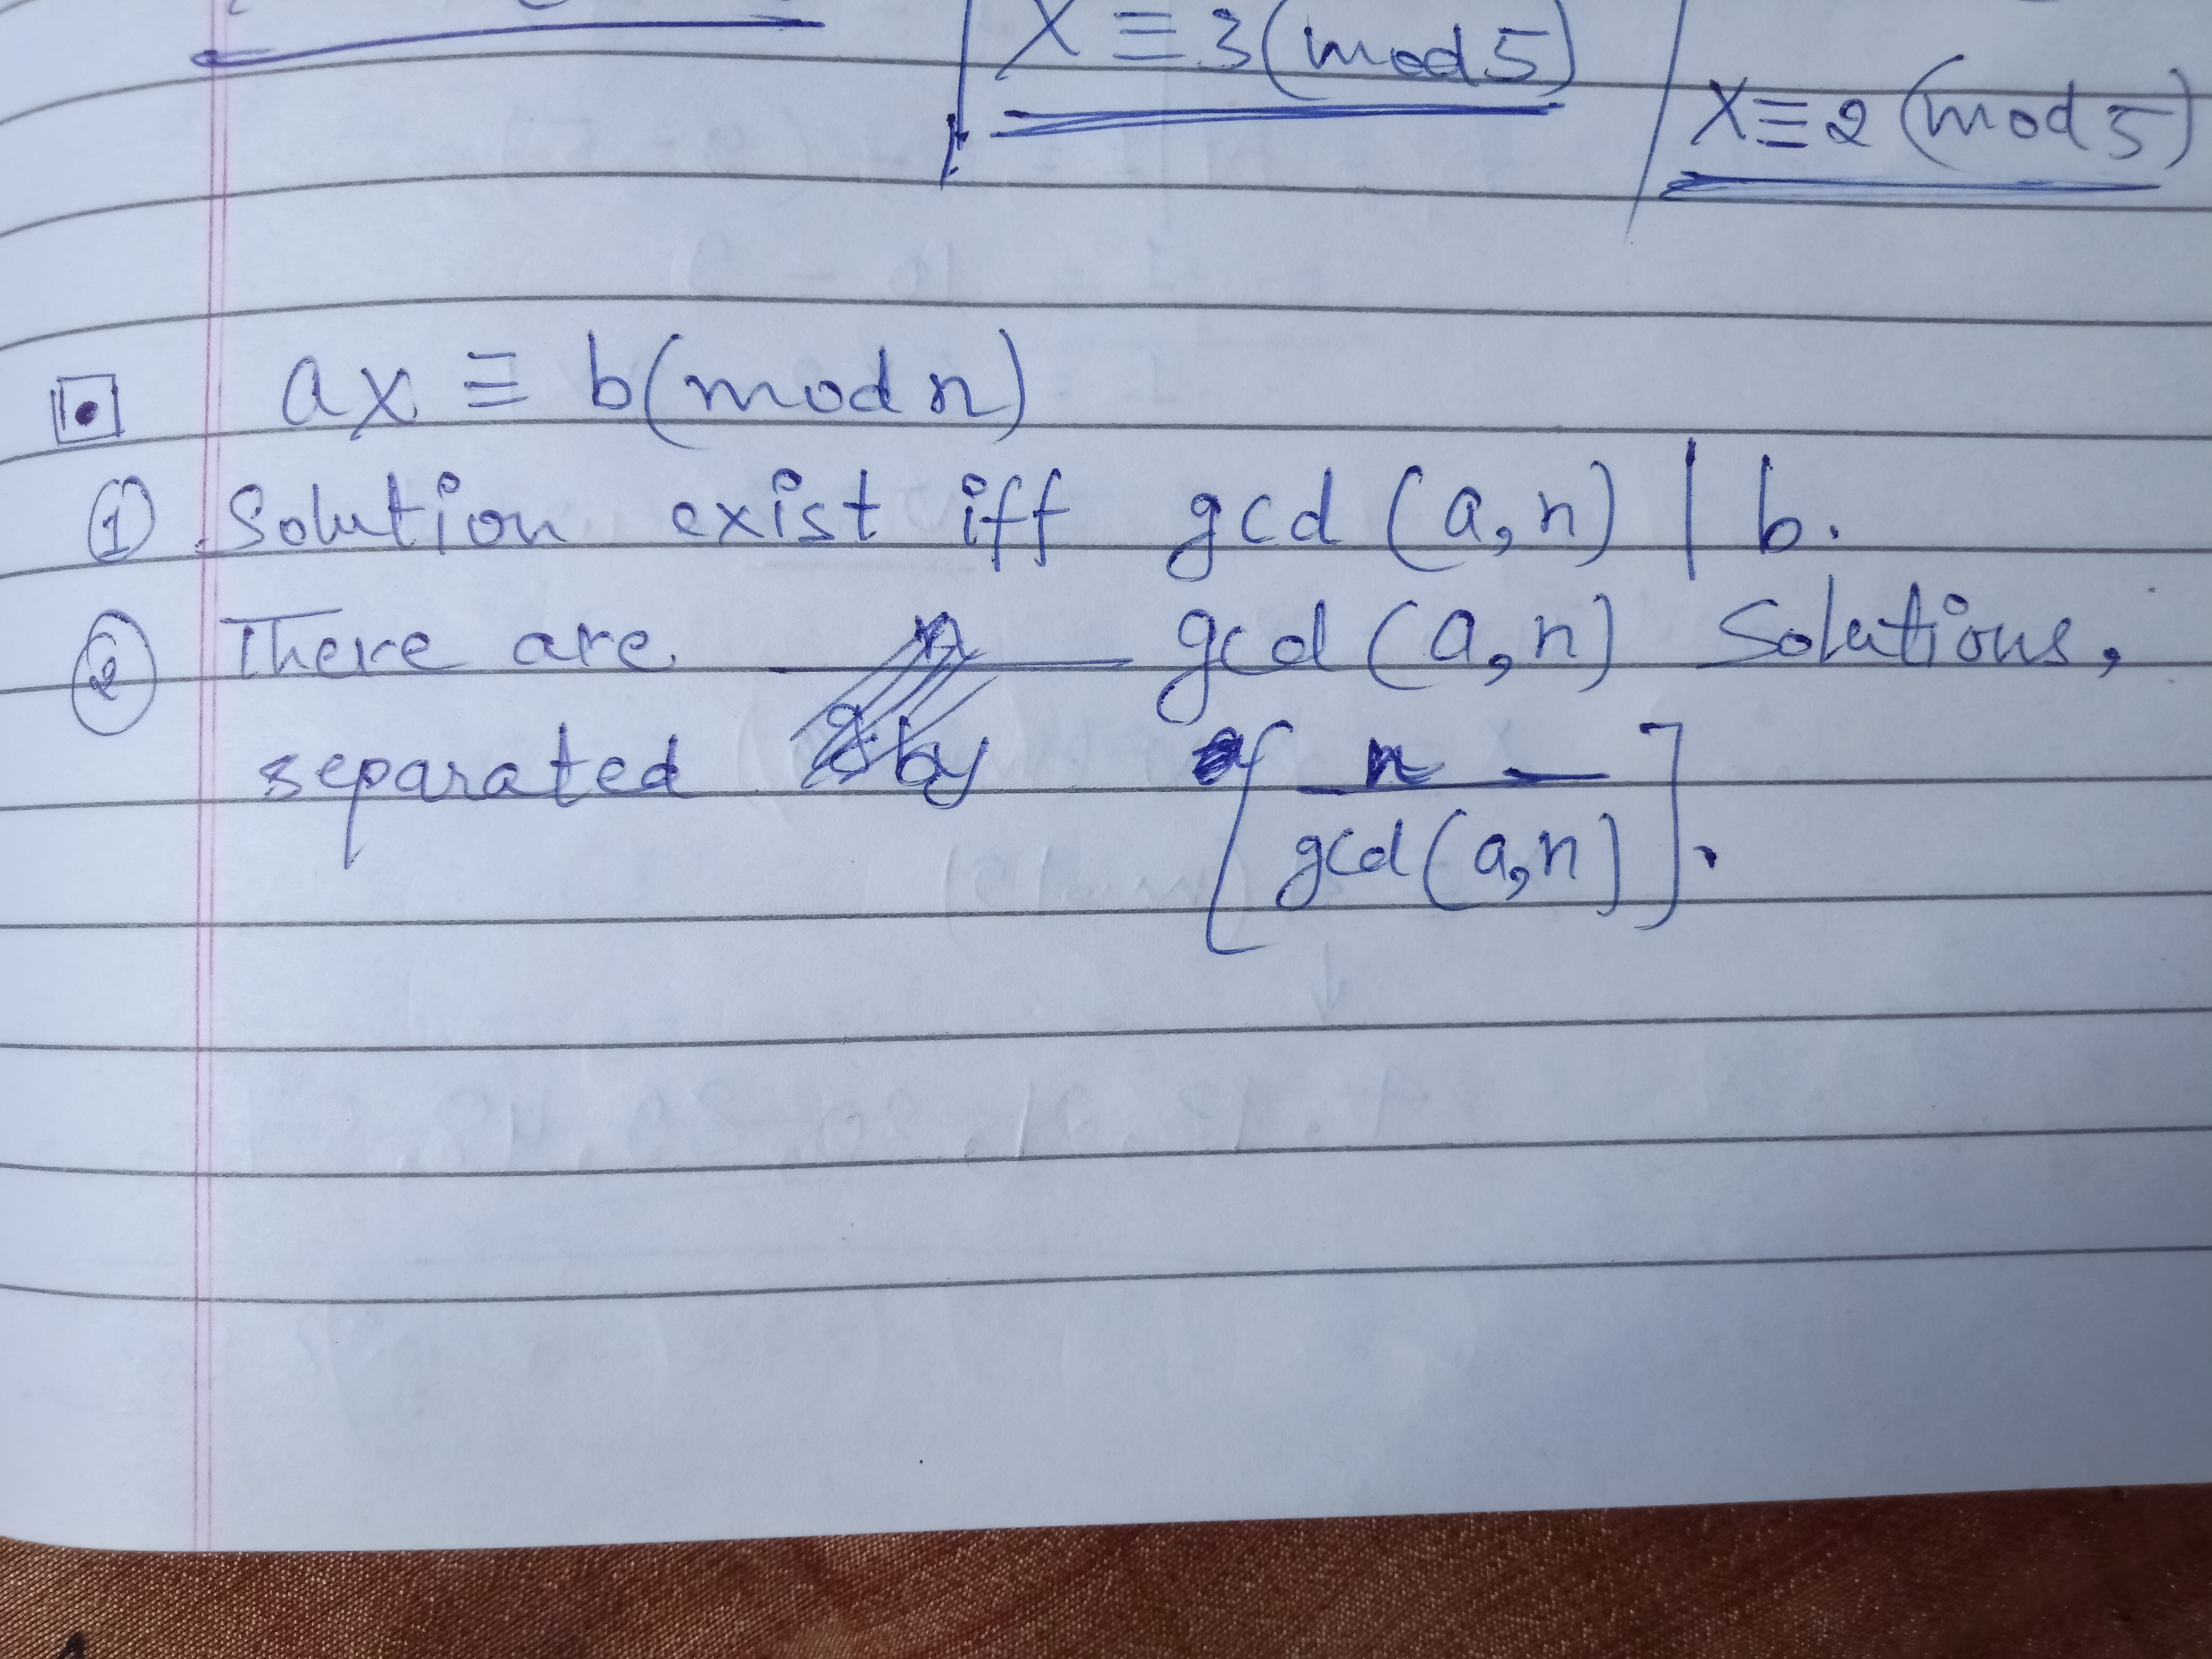 X ≡ 3 (mod 5)
X ≡ 2 (mod 5)
ax ≡ b (mod n)
① Solution exist iff gcd (a, n) | b.
② There are gcd (a, n) Solutions,
separated by [ n / gcd (a, n) ].